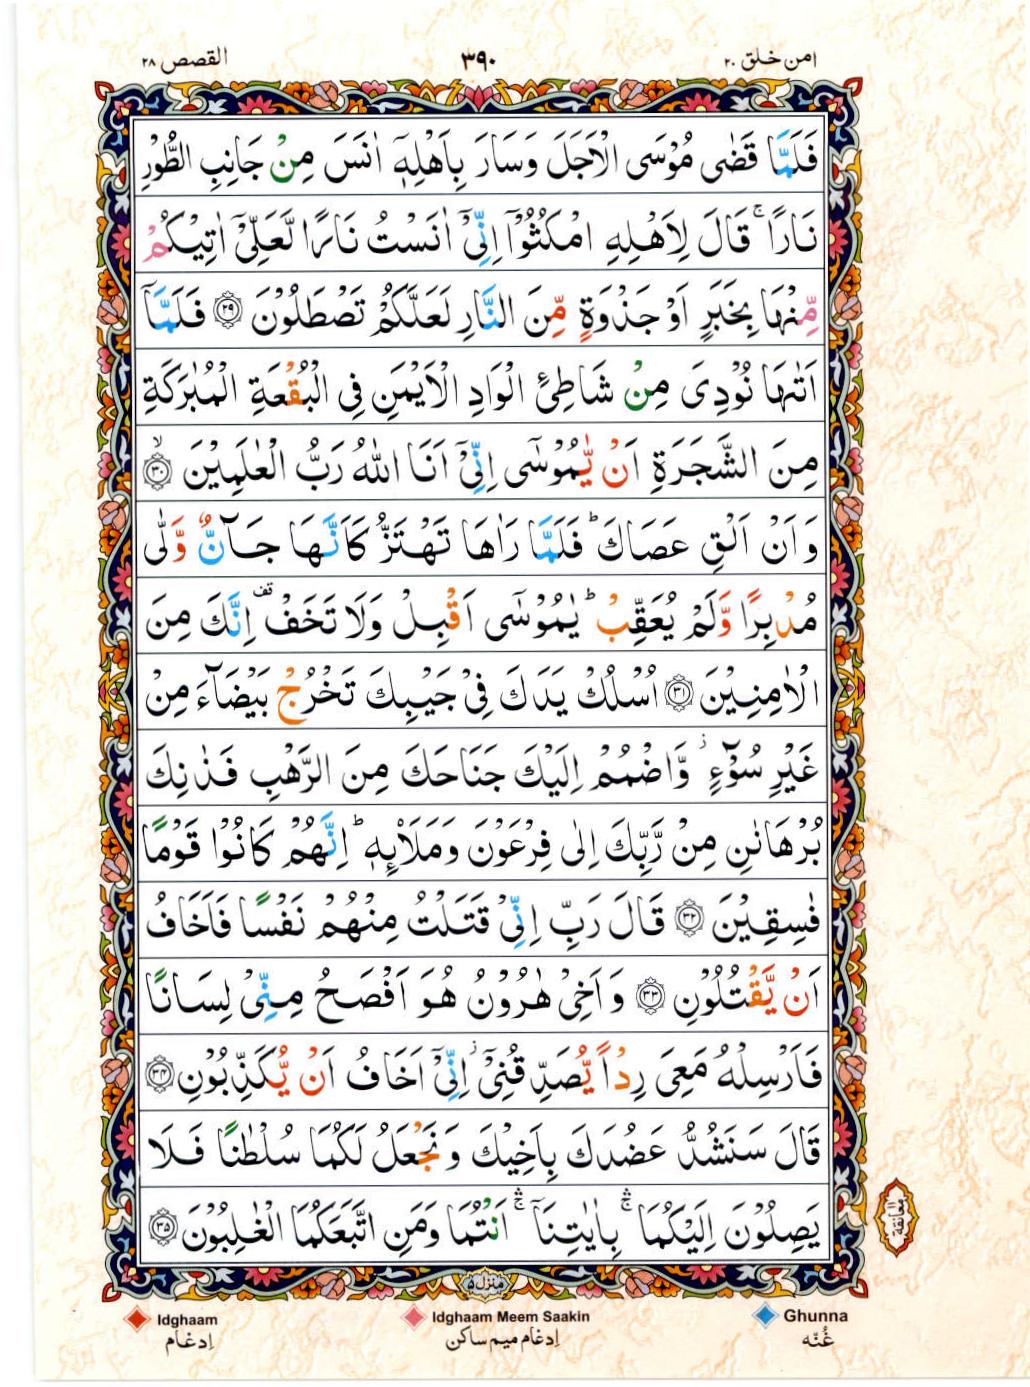 امن خلق ٢٠
٣٩٠
القصص ٢٨
فَلَمَّا قَضٰى مُوْسَى الْاَجَلَ وَسَارَ بِاَهْلِهٖۤ اٰنَسَ مِنْ جَانِبِ الطُّوْرِ
نَارًا ۚ قَالَ لِاَهْلِهِ امْكُثُوْۤا اِنِّيْۤ اٰنَسْتُ نَارًا لَّعَلِّيْۤ اٰتِيْكُمْ
مِّنْهَا بِخَبَرٍ اَوْ جَذْوَةٍ مِّنَ النَّارِ لَعَلَّكُمْ تَصْطَلُوْنَ ﴿٢٩﴾ فَلَمَّاۤ
اَتٰىهَا نُوْدِيَ مِنْ شَاطِئِ الْوَادِ الْاَيْمَنِ فِي الْبُقْعَةِ الْمُبٰرَكَةِ
مِنَ الشَّجَرَةِ اَنْ يّٰمُوْسٰۤى اِنِّيْۤ اَنَا اللّٰهُ رَبُّ الْعٰلَمِيْنَ ۙ﴿٣٠﴾
وَاَنْ اَلْقِ عَصَاكَ ؕ فَلَمَّا رَاٰهَا تَهْتَزُّ كَاَنَّهَا جَآنٌّ وَّلّٰى
مُدْبِرًا وَّلَمْ يُعَقِّبْ ؕ يٰمُوْسٰۤى اَقْبِلْ وَلَا تَخَفْ قف اِنَّكَ مِنَ
الْاٰمِنِيْنَ ﴿٣١﴾ اُسْلُكْ يَدَكَ فِيْ جَيْبِكَ تَخْرُجْ بَيْضَآءَ مِنْ
غَيْرِ سُوْٓءٍ ز وَّاضْمُمْ اِلَيْكَ جَنَاحَكَ مِنَ الرَّهْبِ فَذٰنِكَ
بُرْهَانٰنِ مِنْ رَّبِّكَ اِلٰى فِرْعَوْنَ وَمَلَا۟ئِهٖ ؕ اِنَّهُمْ كَانُوْا قَوْمًا
فٰسِقِيْنَ ﴿٣٢﴾ قَالَ رَبِّ اِنِّيْ قَتَلْتُ مِنْهُمْ نَفْسًا فَاَخَافُ
اَنْ يَّقْتُلُوْنِ ﴿٣٣﴾ وَاَخِيْ هٰرُوْنُ هُوَ اَفْصَحُ مِنِّيْ لِسَانًا
فَاَرْسِلْهُ مَعِيَ رِدْاً يُّصَدِّقُنِيْۤ ز اِنِّيْۤ اَخَافُ اَنْ يُّكَذِّبُوْنِ ﴿٣٤﴾
قَالَ سَنَشُدُّ عَضُدَكَ بِاَخِيْكَ وَنَجْعَلُ لَكُمَا سُلْطٰنًا فَلَا
يَصِلُوْنَ اِلَيْكُمَا ۛۚ بِاٰيٰتِنَاۤ ۛۚ اَنْتُمَا وَمَنِ اتَّبَعَكُمَا الْغٰلِبُوْنَ ﴿٣٥﴾
معانقة
منزل ٥
Ghunna
Idghaam Meem Saakin
Idghaam
غُنّه
إدغام ميم ساكن
إدغام